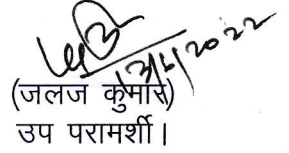 13/6/2022
(जलज कुमार)
उप परामर्शी।